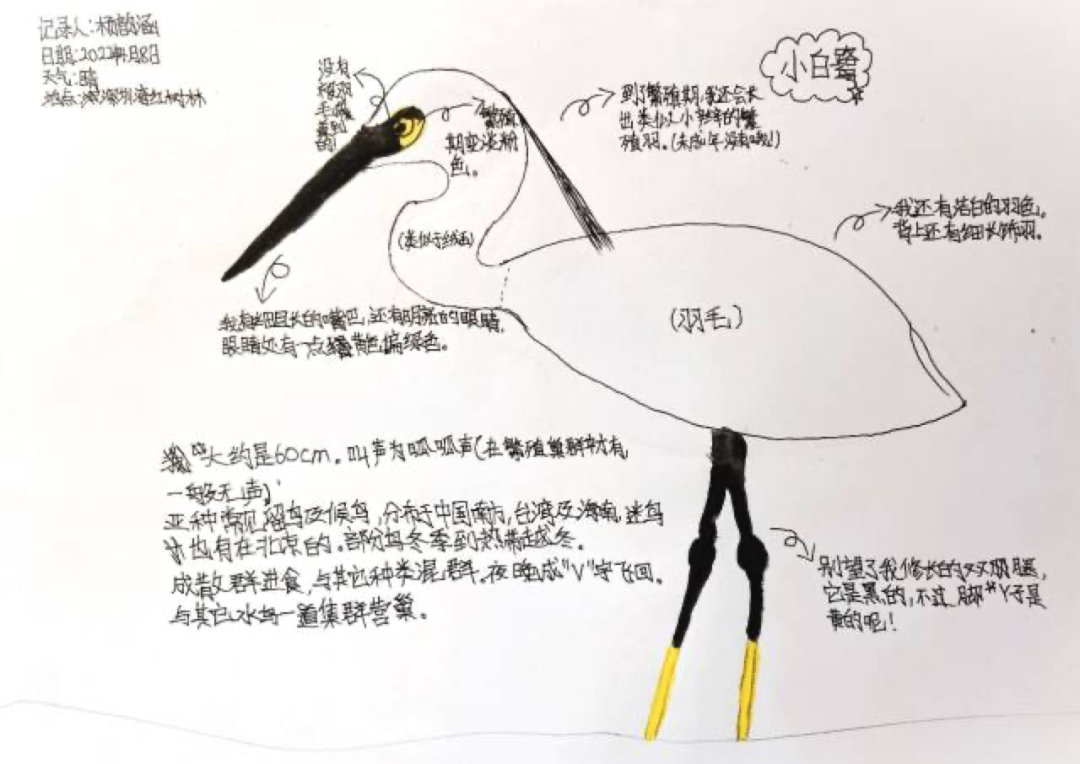 记录人:杨韵涵
日期:2022年1月8日
天气:晴
地点:深圳湾红树林
小白鹭
没有
被羽
毛覆
盖到
的!
繁殖
期变淡粉
色。
到了繁殖期,我还会长
出类似小辫的繁
殖羽。(未成年没有哦!)
我还有洁白的羽色。
背上还有细长饰羽。
(类似于线画)
(羽毛)
我有细且长的嘴巴,还有明亮的眼睛,
眼睛处有一点黄色偏绿色。
我大约是60cm。叫声为呱呱声(在繁殖巢群才有,
一般无声)
亚种常见留鸟及候鸟,分布于中国南方,台湾及海南,迷鸟
也有在北京的。部分鸟冬季到热带越冬。
成散群进食,与其它种类混群。夜晚成"V"字飞回。
与其它水鸟一道集群营巢。
别望了我修长的双腿,
它是黑的,不过脚丫子是
黄的呢!